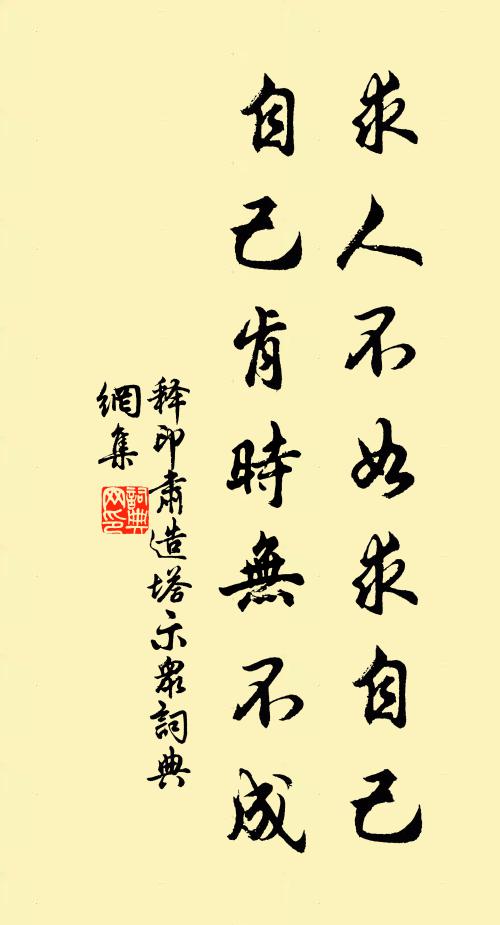 求人不如求自己
自己肯時無不成
释印肅造塔示眾詞典
網集
詞典
网印